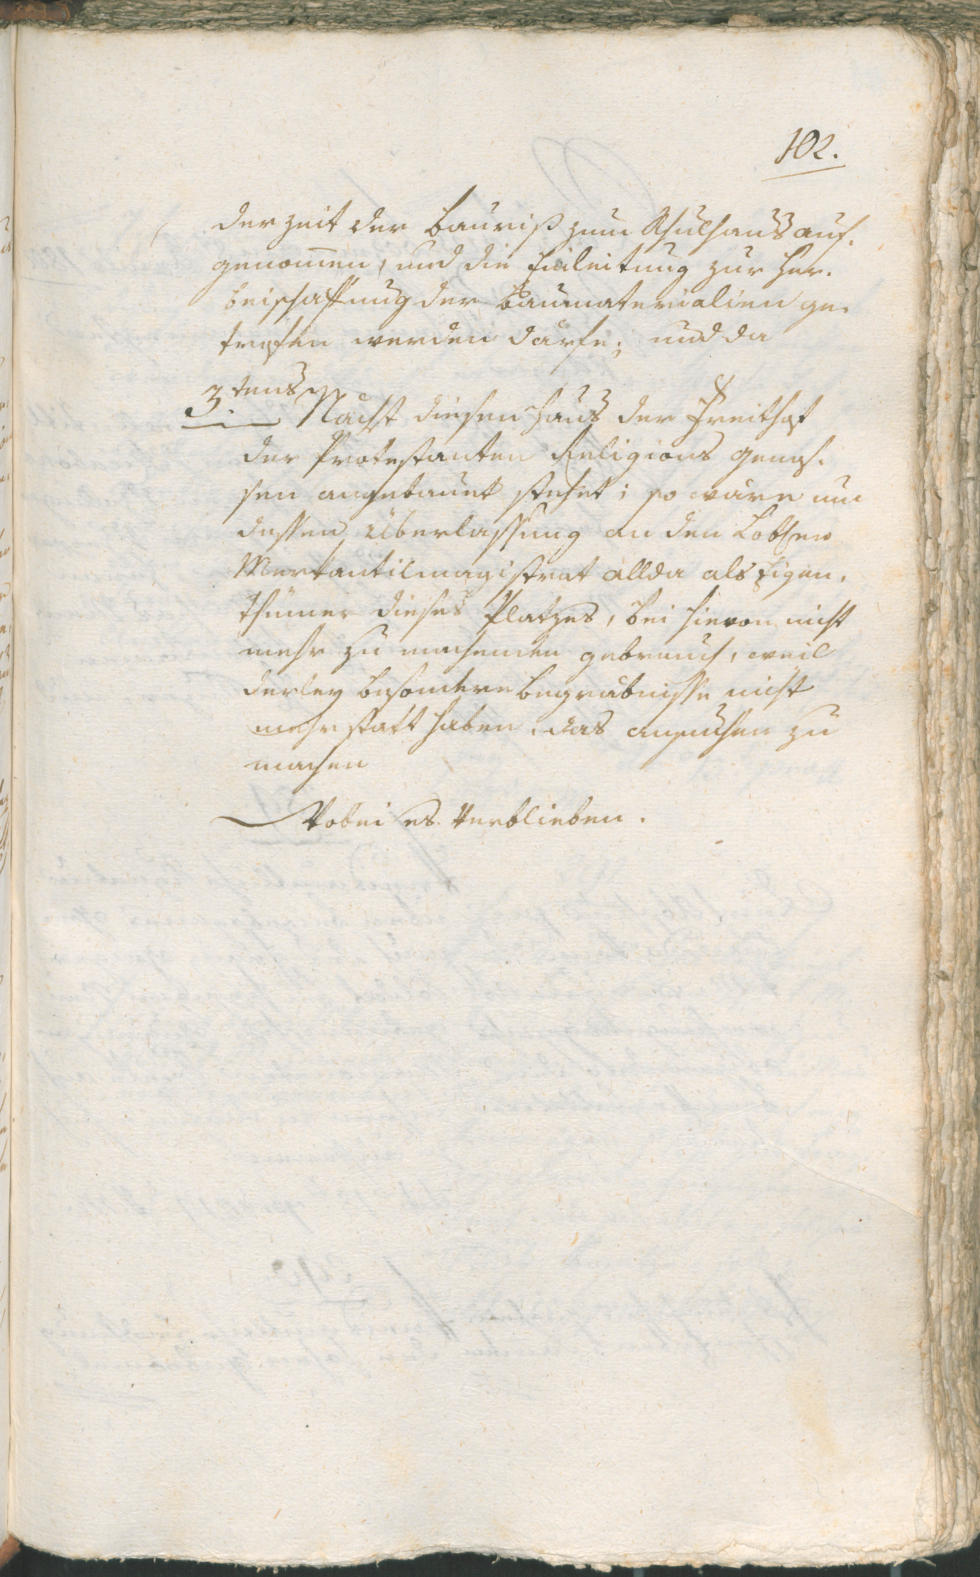 102.
der zeit der Bauriß zum Schulhaus auf-
genom̄en, und die Einleitung zur Her-
beischaffung der Baumaterialien ge-
trofen werden därfe; und da
3.tens Nächst diesen Haus der Freithof
der Protestanten Religions Genos-
sen angebauet stehet; so wäre um
dessen Überlassung an den Löbłen
Merkantilmagistrat allda als Eigen-
thümer dieses Platzes, bei hievon nicht
mehr zu machenden gebrauch, weil
derley besondere Begräbnisse nicht
mehr statt haben, das ansuchen zu
machen
Wobei es verblieben.